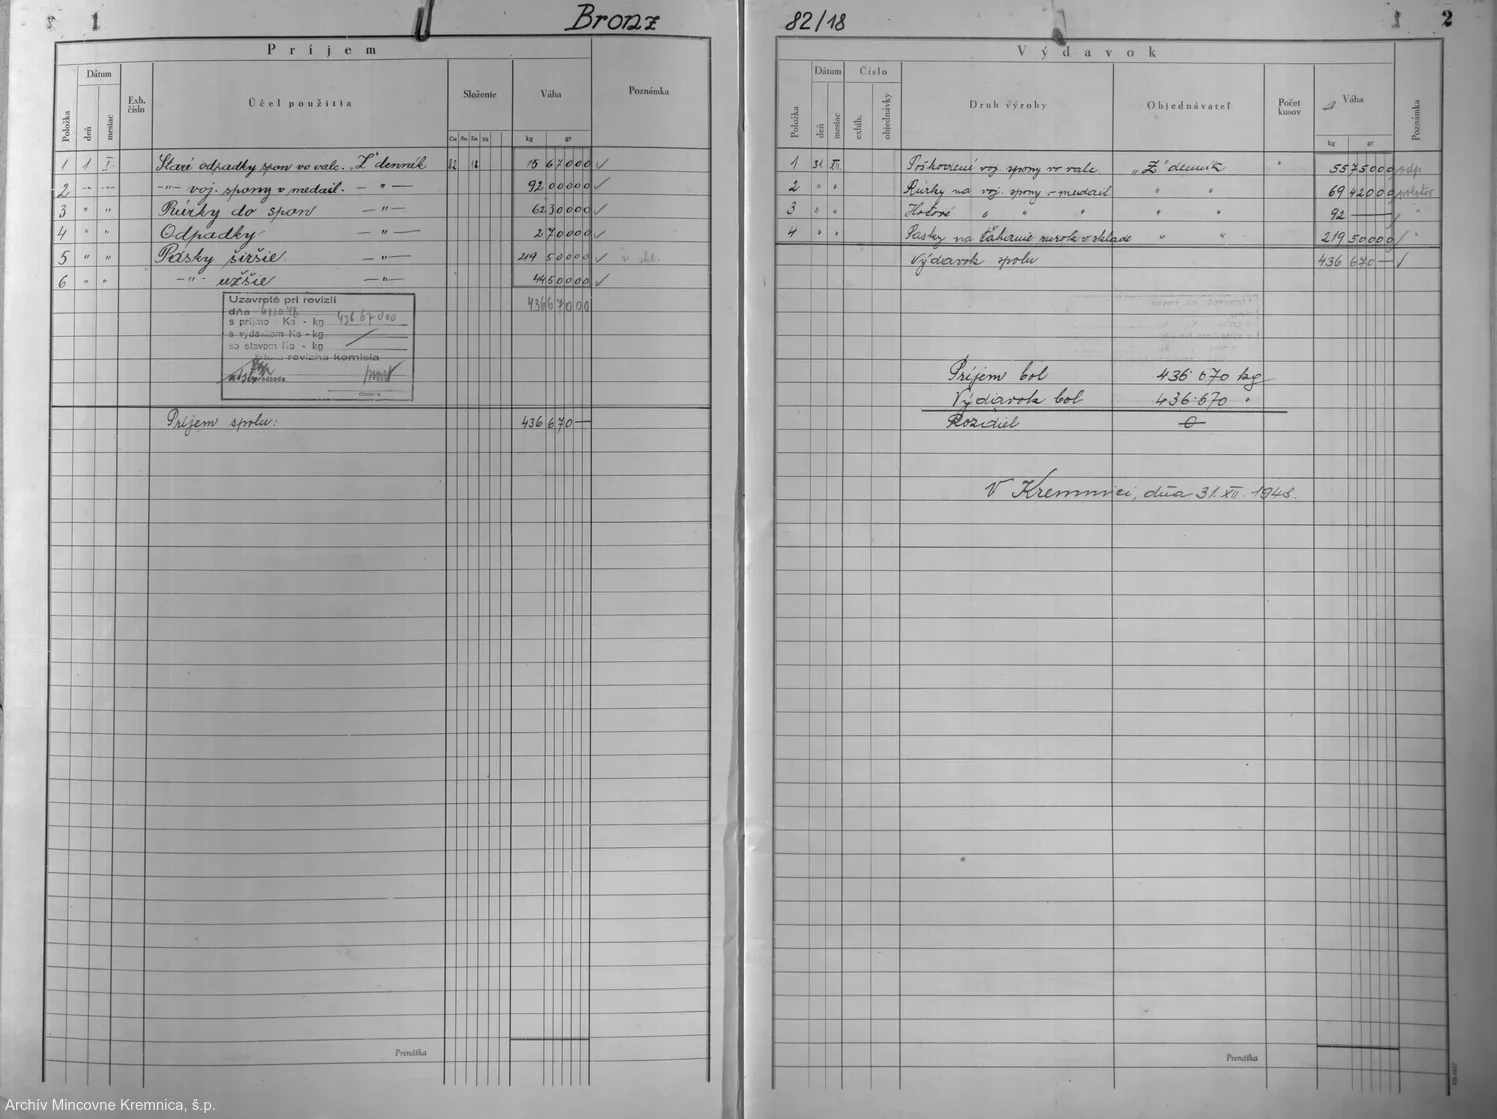 1 Bronz
Príjem
Položka Dátum deň mesiac Exh. číslo Účel použitia Složenie Cu Sn Zn Váha kg gr Poznámka
1 1 I. Staré odpadky spon vo valc. "Z" denník 82 18 15 67000 ✓
2 -"- -"- -"- voj. spony v medail. -"- 92 00000 ✓
3 " " Rúrky do spon -"- 62 30000 ✓
4 " " Odpadky -"- 2 70000 ✓
5 " " Pásky širšie -"- 219 50000 ✓
6 " " -"- užšie -"- 44 50000 ✓
436 67000
Uzavreté pri revízii
dňa
s príjmo Ks - kg 436 67000
s výdavkom Ks - kg
so stavom Ks - kg
revízna komisia
Príjem spolu: 436 670 —
Prenáška
82/18 2
Výdavok
Položka Dátum deň mesiac Číslo exhib. objednávky Druh výroby Objednávateľ Počet kusov Váha kg gr Poznámka
1 31. XII. Poškodené voj. spony vo valc "Z" denník 55 75000 odp.
2 " " Rúrky na voj. spony v medail. " " 69 42000
3 " " Hotové " " " " " 92 — ✓ "
4 " " Pásky na ťahanie v sklade " " 219 50000 ✓ "
Výdavok spolu 436 670 — ✓
Príjem bol 436.670 kg
Výdavok bol 436.670 "
Rozdiel 0
V Kremnici, dňa 31. XII. 1948.
Prenáška
Archív Mincovne Kremnica, š.p.